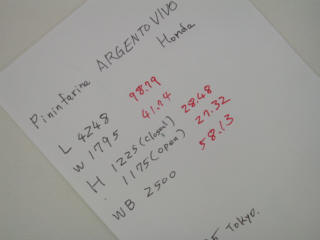 Pininfarina ARGENTO VIVO
Honda
L 4248 98.79
W 1795 41.74
H 1225 (closed) 28.48
1175 (open) 27.32
WB 2500 58.13
Tokyo.